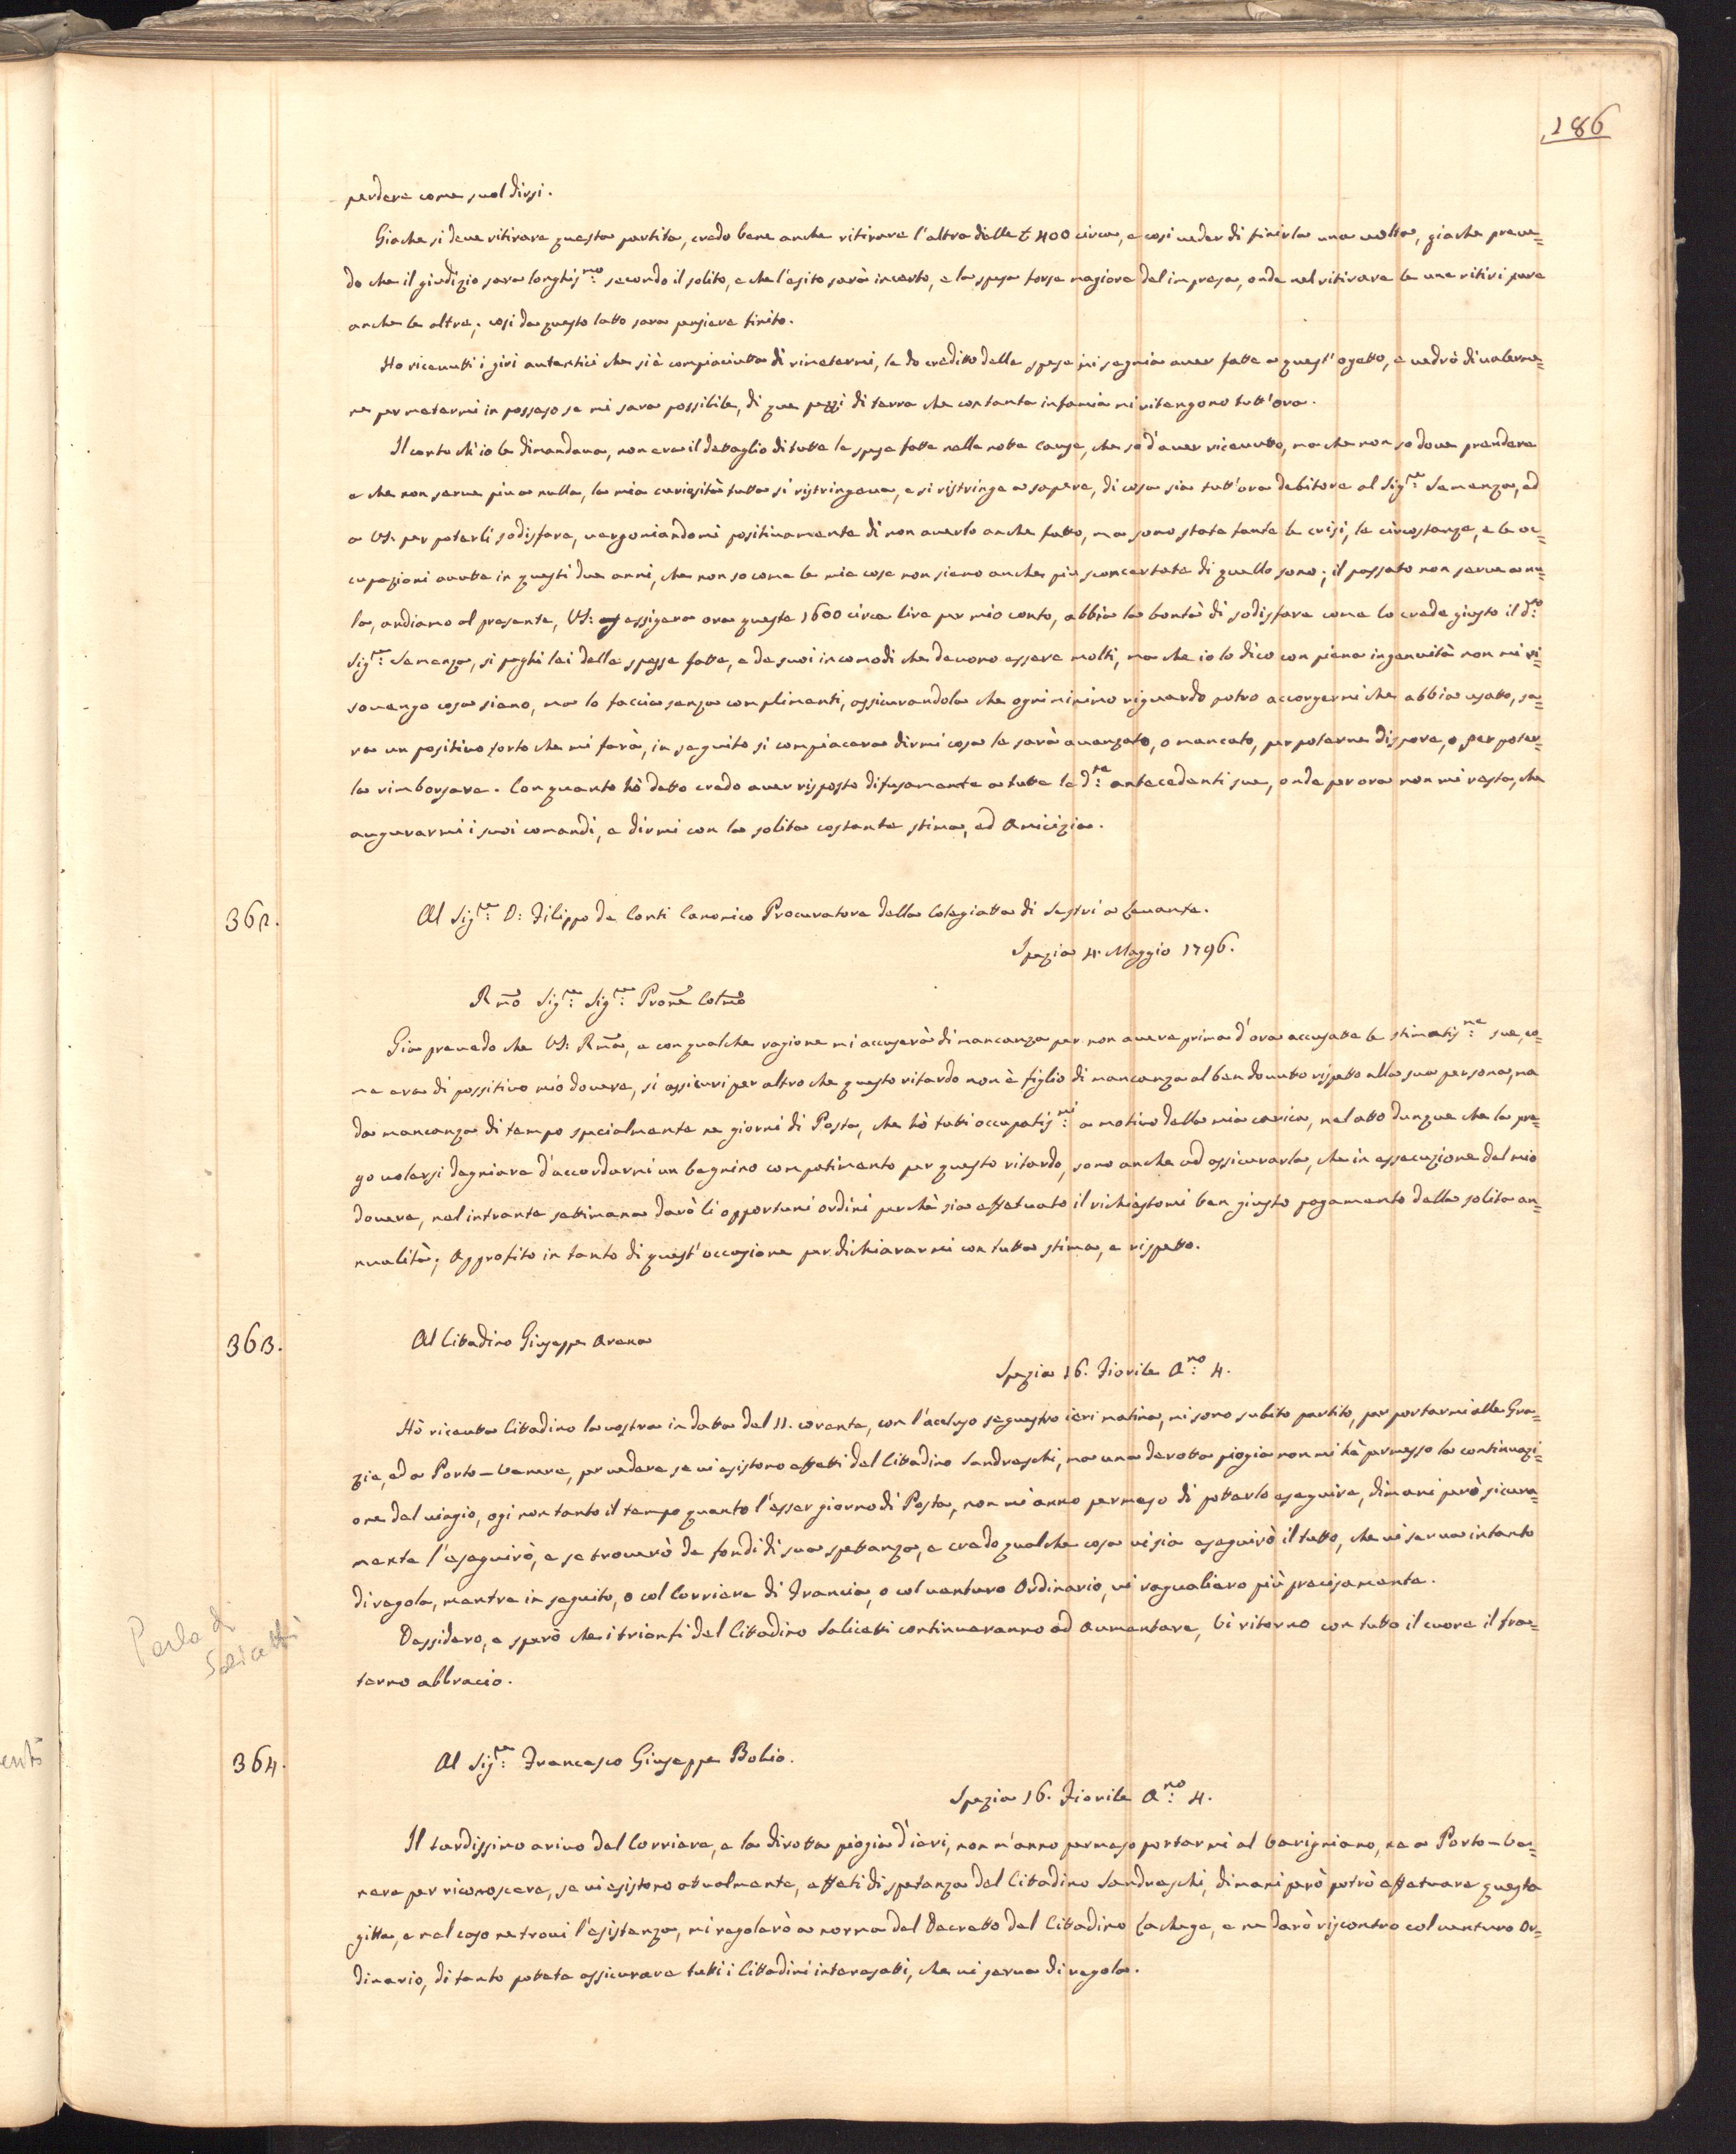 186
perdere come suol dirsi.
Giache si deve ritirare questa partita, credo bene anche ritirare l'altra delle £ 400 circa, e cosi veder di finirla una volta, giache preve=
do che il giudizio sara longhis.mo secondo il solito, e che l'esito sarà incerto, e la spesa forse magiore del impresa, onde nel ritirare le une ritiri pure
anche le altre, cosi da questo latto sara pensiere finito.
Ho ricevutti i giri autentici che si è compiaciutta di rimetermi, le do creditto delle spese mi segnia aver fatte a quest'ogetto, e vedrò di valerme=
ne per metermi in possesso se mi sara possibile, di que pezzi di terra che con tanta infamia mi ritengono tutt'ora.
Il conto ch'io le dimandava, non era il dettaglio di tutte le spese fatte nelle notte cause, che so d'aver ricevutto, ma che non so dove prendere
e che non serve piu a nulla, la mia curiosità tutta si ristringeva, e si ristringe a sapere, di cosa sia tutt'ora debitore al Sig.re Semenza, ed
a VS. per poterli sodisfare, vergoniandomi positivamente di non averlo anche fatto, ma sono state tante le crisi, le circostanze, e le oc=
cupazioni avutte in questi due anni, che non so come le mie cose non siano anche più sconcertate di quello sono; il passato non serve a nu=
la, andiamo al presente, VS: essigera ora queste 1600 circa lire per mio conto, abbia la bontà di sodisfare come lo crede giusto il d.o
Sig.re Semenza, si paghi lei delle spesse fatte, e de suoi incomodi che devono essere molti, ma che io lo dico con piena ingenuità non mi ri=
sovengo cosa siano, ma lo faccia senza complimenti, assicurandola che ogni minimo riguardo potro accorgermi che abbia usatto, sa=
ra un positivo torto che mi farà, in seguito si compiacera dirmi cosa le sarà avanzato, o mancato, per poterne dispore, o per poter=
la rimborsare. Con quanto hò detto credo aver risposto difusamente a tutte le d.te antecedenti sue, onde per ora non mi resta, che
augurarmi i suoi comandi, e dirmi con la solita costante stima, ed Amicizia.
362.
Al Sig.re D: Filippo de Conti Canonico Procuratore della Colegiatta di Sestri a Levante.
Spezia 4. Maggio 1796.
Rmo Sig.re Sig.re Prone Colmo
Gia prevedo che VS: Rma, e con qualche ragione mi accuserà di mancanza per non avere prima d'ora accusatte le stimatis.me sue, co=
me era di possitivo mio dovere, si assicuri per altro che questo ritardo non è figlio di mancanza al ben dovutto rispetto alla sua persona, ma
da mancanza di tempo specialmente ne giorni di Posta, che hò tutti occupatis.mi a motivo della mia carica, nel atto dunque che la pre=
go volersi degniare d'accordarmi un begnino compatimento per questo ritardo, sono anche ad assicurarla, che in essecuzione del mio
dovere, nel intrante settimana darò li opportuni ordini perchè sia effetuato il richiestomi ben giusto pagamento della solita an=
nualità; Approfito in tanto di quest'occasione per dichiararmi con tutta stima, e rispetto.
363.
Al Cittadino Giuseppe Arena
Spezia 16. Fiorile A.no 4.
Hò ricevuta Cittadino la vostra in datta del 11. corente, con l'accluso sequestro ieri matina, mi sono subito partito, per portarmi alle Gra=
zie, ed a Porto-Venere, per vedere se vi esistono effetti del Cittadino Sandreschi, ma una derotta piogia non mi hà permesso la continuazi=
one del viagio, ogi non tanto il tempo quanto l'esser giorno di Posta, non mi anno permeso di potterlo eseguire, dimani però sicura=
mente l'eseguirò, e se troverò de fondi di sua spettanza, e credo qualche cosa vi sia eseguirò il tutto, che vi serva intanto
di regola, mentre in seguito, o col Corriere di Francia, o col venturo Ordinario, vi raguagliero più precisamente.
Dessidero, e sperò che i trionfi del Cittadino Salicetti continueranno ad aumentare, Vi ritorno con tutto il cuore il fra=
terno abbracio.
Parla di
Salicetti
364.
Al Sig.re Francesco Giuseppe Bobio.
Spezia 16. Fiorile A.no 4.
Il tardissimo arivo del Corriere, e la dirotta piogia d'ieri, non m'anno permeso portarmi al Varigniano, ne a Porto-Ve=
nere per riconoscere, se vi esistono atualmente, effeti di spetanza del Cittadino Sandreschi, dimani però potrò effetuare questa
gitta, e nel caso ne trovi l'esistenza, mi regolarò a norma del Decretto del Cittadino Lachege, e ne darò riscontro col venturo Or=
dinario, di tanto potete assicurare tutti i Cittadini interesatti, che vi serva di regola.